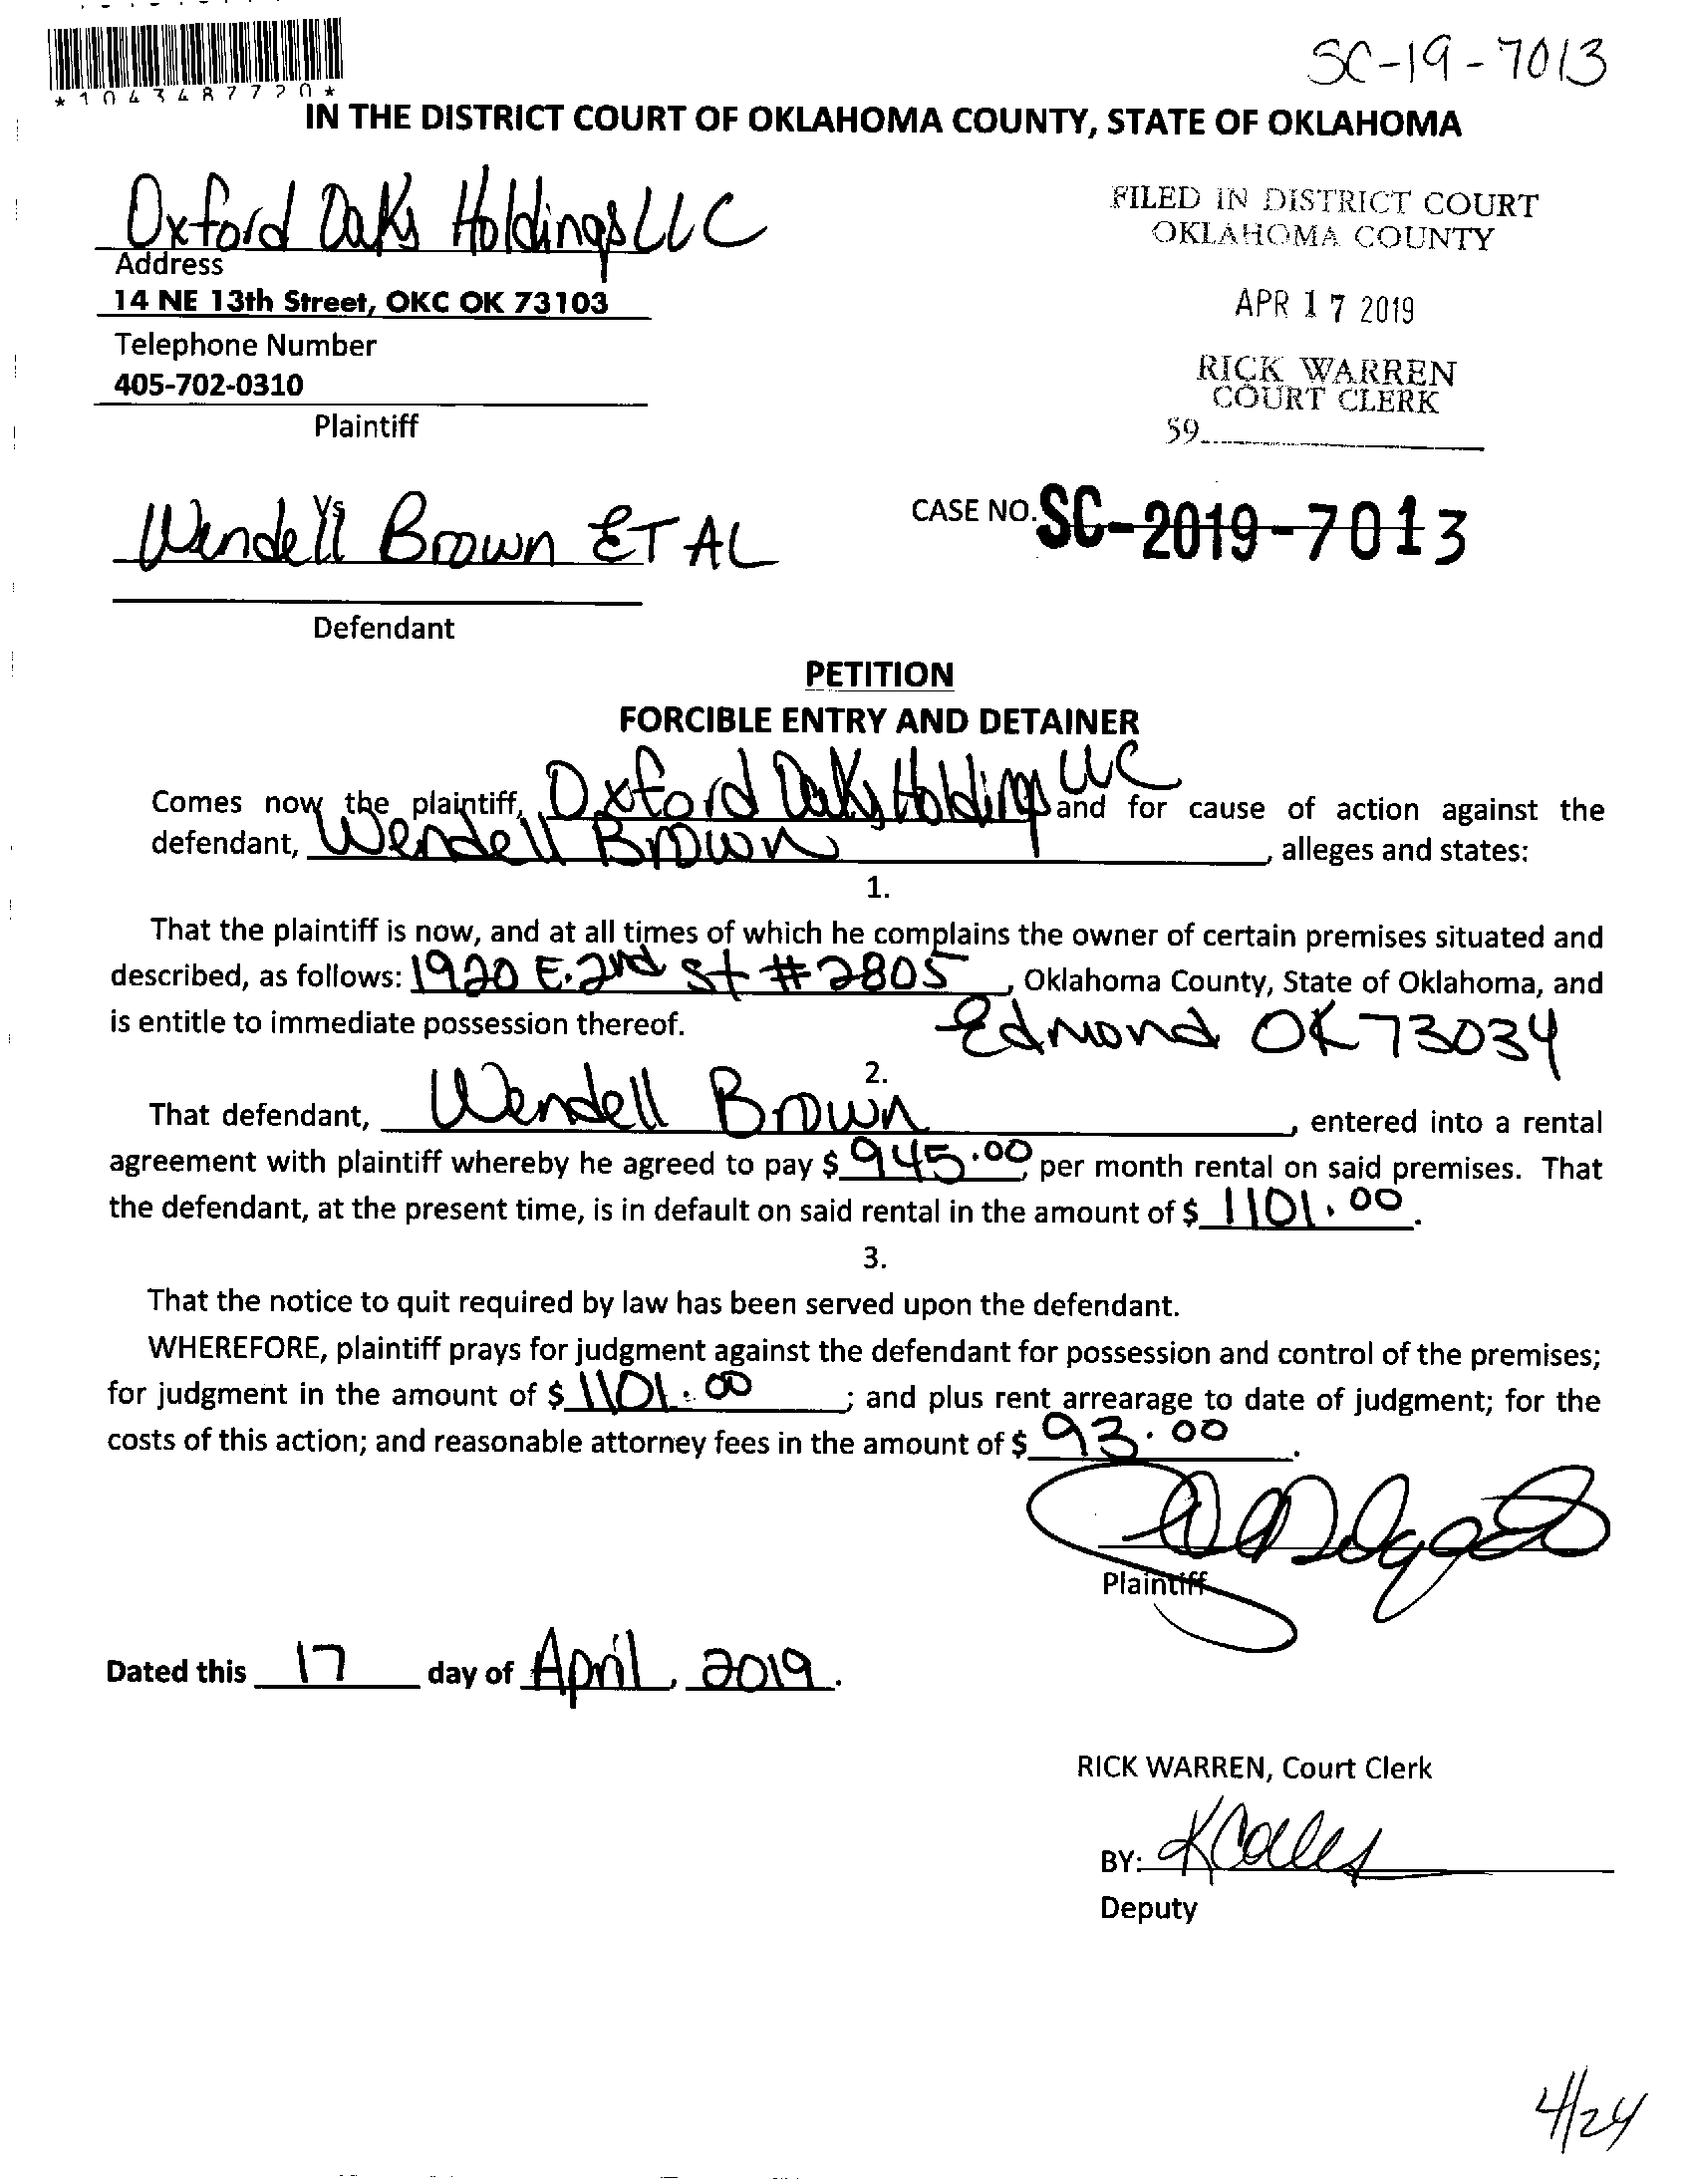 SC-19-7013
*1043487720*
IN THE DISTRICT COURT OF OKLAHOMA COUNTY, STATE OF OKLAHOMA
Oxford Oaks Holdings LLC
Address
14 NE 13th Street, OKC OK 73103
Telephone Number
405-702-0310
Plaintiff
FILED IN DISTRICT COURT
OKLAHOMA COUNTY
APR 17 2019
RICK WARREN
COURT CLERK
59
Vs
Wendell Brown ET AL
Defendant
CASE NO. SC-2019-7013
PETITION
FORCIBLE ENTRY AND DETAINER
Comes now the plaintiff, Oxford Oaks Holdings LLC and for cause of action against the
defendant, Wendell Brown, alleges and states:
1.
That the plaintiff is now, and at all times of which he complains the owner of certain premises situated and
described, as follows: 1920 E. 2nd St #2805, Oklahoma County, State of Oklahoma, and
is entitle to immediate possession thereof. Edmond OK 73034
2.
That defendant, Wendell Brown, entered into a rental
agreement with plaintiff whereby he agreed to pay $ 945.00, per month rental on said premises. That
the defendant, at the present time, is in default on said rental in the amount of $ 1101.00.
3.
That the notice to quit required by law has been served upon the defendant.
WHEREFORE, plaintiff prays for judgment against the defendant for possession and control of the premises;
for judgment in the amount of $ 1101.00; and plus rent arrearage to date of judgment; for the
costs of this action; and reasonable attorney fees in the amount of $ 93.00.
Plaintiff
Dated this 17 day of April, 2019.
RICK WARREN, Court Clerk
BY:
Deputy
4/24